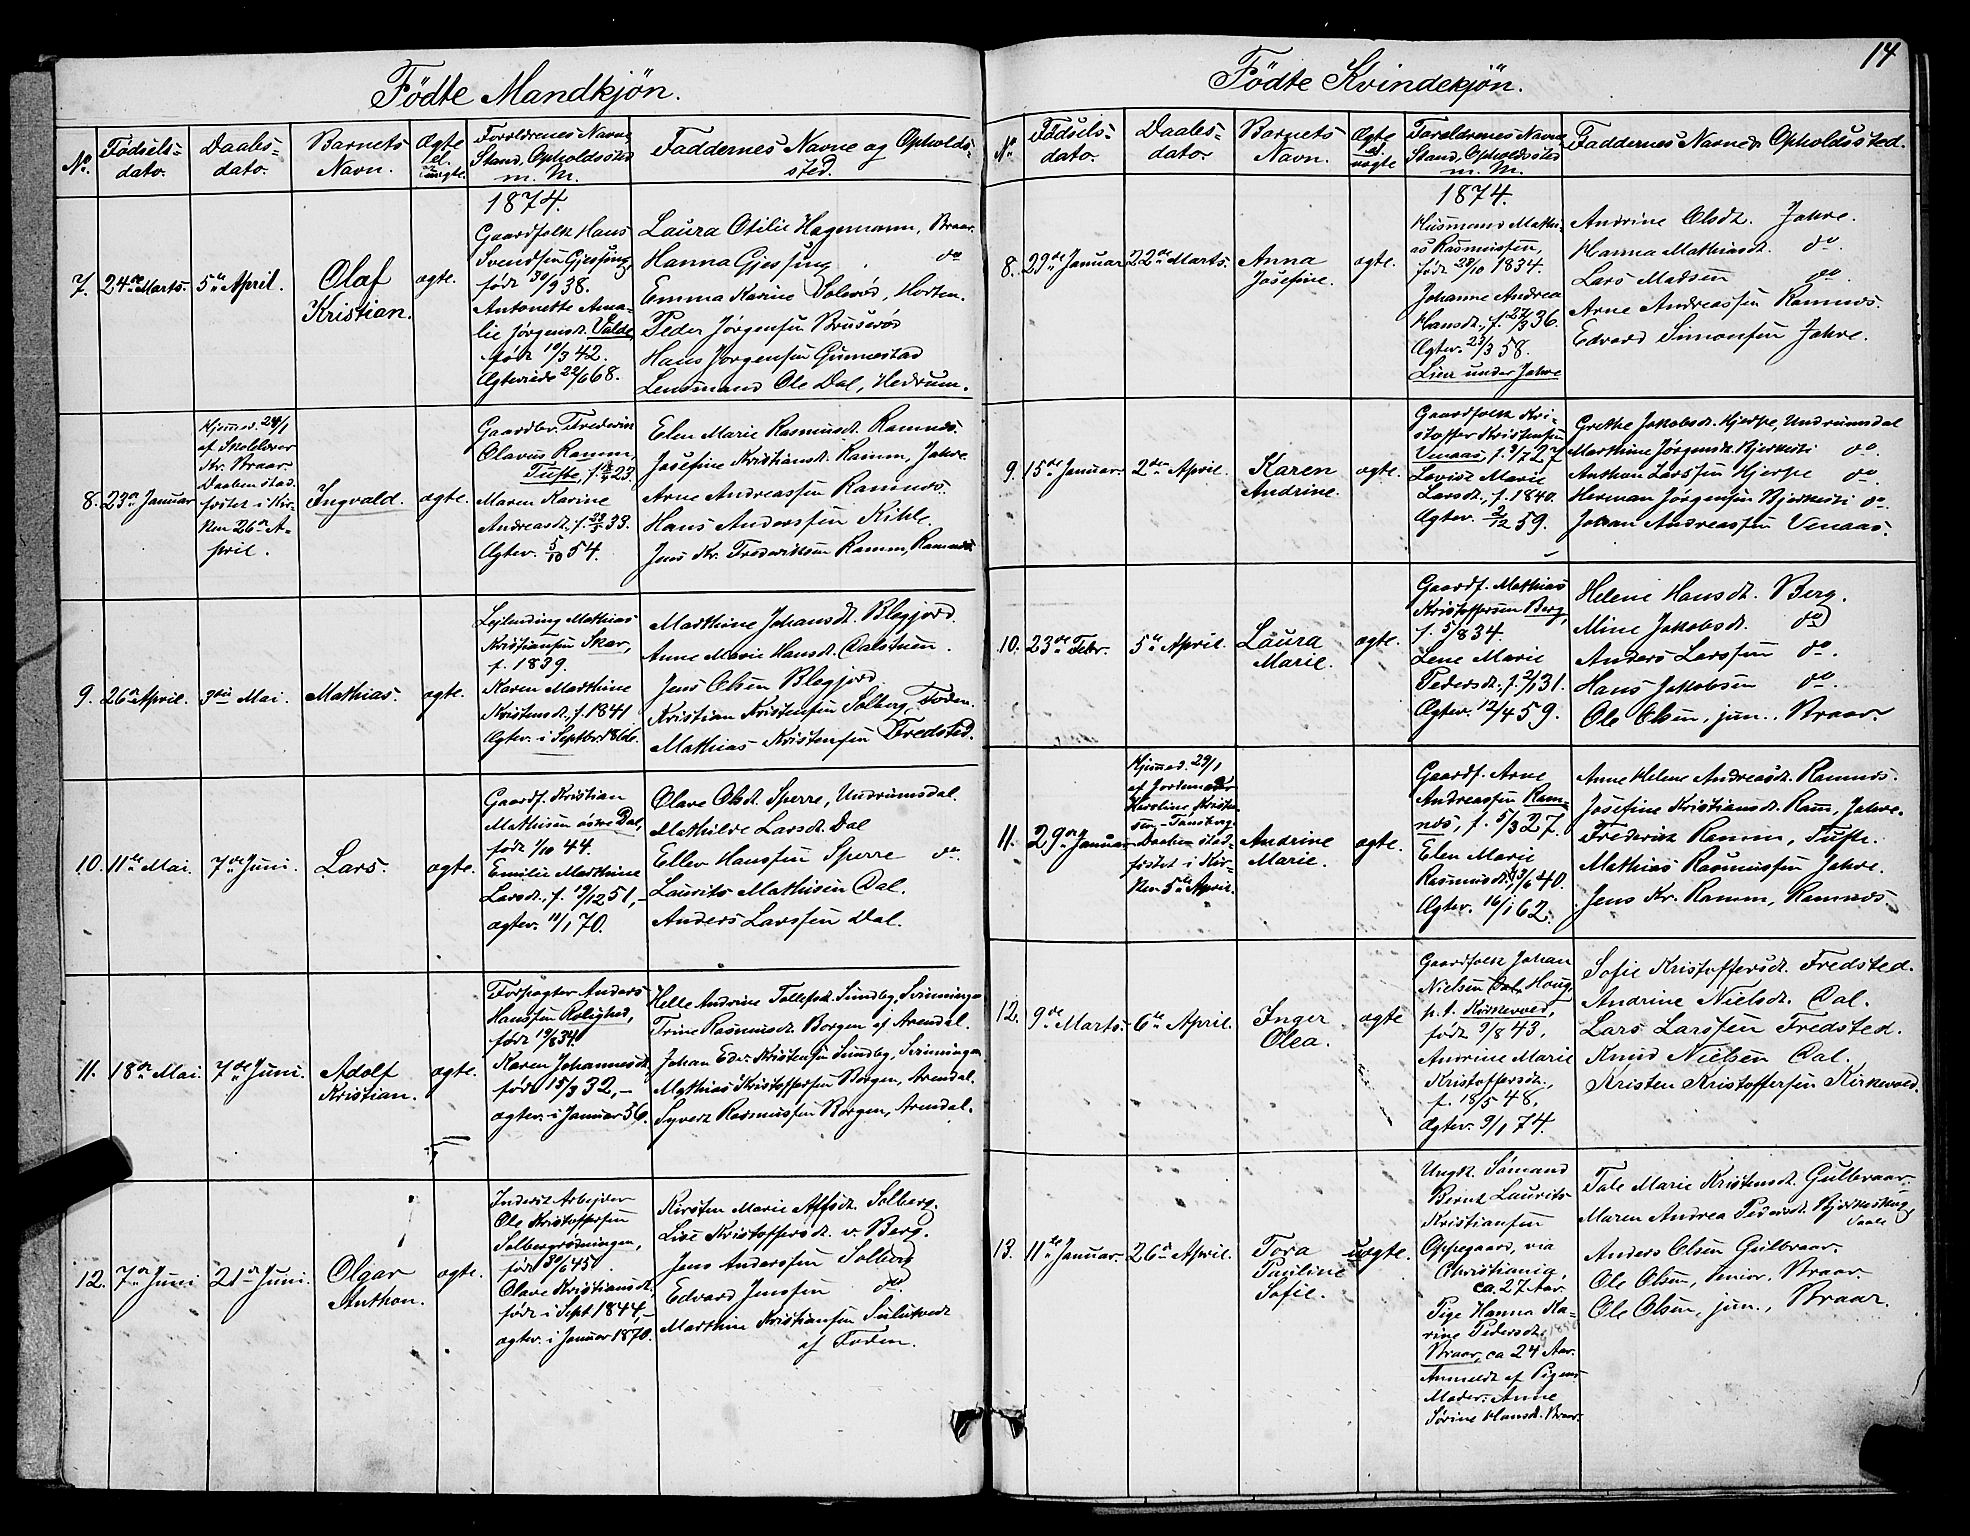 14
Fødte Mandkjøn.
No. Fødsels= dato. Daabs= dato. Barnets Navn. Ægte el. uægte. Forældrenes Navne Stand, Opholdssted m. M. Faddernes Navne og Opholds= sted.
1874.
7. 24de Marts. 5te April. Olaf Kristian. ægte.
Gaardfolk Hans
Svendsen Gjessing,
født 30/9 38.
Antonette Ama=
lie Jørgensdt. Valde,
født 10/3 42.
Ægteviede 22/6 68.
Laura Otilie Hagemann, Braar.
Hanna Gjessing do
Emma Karine Solerød, Horten.
Peder Jørgensen Bruserød
Hans Jørgensen Gunnestad
Lensmand Ole Dal, Hedrum.
8. 23de Januar
Hjemmed. 24/1
af Skolelærer
Kr. Braar.
Daaben stad=
fæstet i Kir=
ken 26de A=
pril.
Ingvald. ægte.
Gaardbr. Frederik
Olavus Ramm,
Tufte, f. 23.
Maren Karine
Andreasdt. f. 33.
Ægtev. 5/10 54.
Elen Marie Rasmusdt. Ramnæs.
Josefine Kristiansdt. Ramm, Jahre
Arne Andreassen Ramnæs.
Hans Anderssen Kihle.
Jens Kr. Frederiksen Ramm, Ramnæs.
9. 26de April. 3die Mai. Mathias. ægte.
Lejlænding Mathias
Kristiansen Skar,
f. 1839.
Karen Marthine
Kristensdt. f. 1841
Ægtev. i Septbr. 1866.
Marthine Johansdt. Blegjord.
Anne Marie Hansdt. Dalstuen.
Jens Olsen Blegjord.
Kristian Kristensen Solberg, Foden.
Mathias Kristensen Fredsted.
10. 11te Mai. 7de Juni. Lars. ægte.
Gaardf. Kristian
Mathisen østre Dal,
født 1/10 44.
Emilie Marthine
Larsdt., f. 19/12 51,-
ægtev. 11/1 70.
Olave Olsdt. Sperre, Undrumsdal.
Mathilde Larsdt. Dal
Ellev Hanssen Sperre do.
Laurits Mathisen Dal.
Anders Larssen Dal.
11. 18de Mai. 7de Juni. Adolf Kristian. ægte.
Forpagter Anders
Hanssen Rolighed,
født 19/8 34.
Karen Johannesdt.
født 15/3 32,-
ægtev. i Januar 56.
Helle Andrine Tollefsdt. Sundby, Svinningen
Trine Rasmusdt. Borgen af Arendal.
Johan Edv. Kristensen Sundby, Svinningen
Mathias Kristoffersen Borgen, Arendal.
Syvert Rasmussen Borgen, Arendal.
12. 7de Juni 21de Juni. Olgar Anthon. ægte.
Inderst Arbejder
Ole Kristoffersen
Solbergrødningen,
født 30/6 45.
Olave Kristiansdt.
født i Sept. 1844,-
ægtev. i Januar 1870.
Kirsten Marie Alfsdt. Solberg.
Lise Kristoffersdt. v. Berg.
Jens Anderssen Solberg
Edvard Jenssen do.
Marthin Kristiansen Sulutvedt
af Foden.
Fødte Kvindekjøn.
No. Fødsels= dato. Daabs= dato. Barnets Navn. Ægte el. uægte Forældrenes Navne Stand, Opholdssted m. M. Faddernes Navne & Opholdssted.
1874.
8. 29de Januar 22de Marts. Anna Josefine. ægte.
Husmand Mathi=
as Rasmussen,
født 28/10 1834.
Johanne Andrea
Hansdt., f. 27/3 36.
Ægtev. 23/3 58.
Lien under Jahre
Andrine Olsdt. Jahre.
Hanna Mathiasdt. do.
Lars Madsen do.
Arne Andreassen Ramnæs.
Edvard Simonsen Jahre.
9. 15de Januar. 2den April. Karen Andrine. ægte.
Gaardfolk Kri=
stoffer Kristensen
Venaas, f. 9/7 27
Lovise Marie
Larsdt., f. 1840.
Ægtev. 2/12 59.
Grethe Jakobsdt. Hjerpe, Undrumsdal
Marthine Jørgensdt. Bjerketi do.
Anthon Larssen Hjerpe do.
Herman Jørgensen Bjerketi do.
Johan Andreassen Venaas.
10. 23de Febr. 5te April. Laura Marie. ægte.
Gaardf. Mathias
Kristoffersen Berg,
f. 5/8 34.
Lene Marie
Pedersdt., f. 2/1 31.
Ægtev. 12/4 59.
Helene Hansdt. Berg.
Mine Jakobsdt. do
Anders Larssen do.
Hans Jakobsen do.
Ole Olsen, jun., Braar.
11. 29de Januar
Hjemmed. 29/1
af Jordemoder
Karoline Kristen=
sen, Tønsberg.
Daaben stad=
fæstet i Kir=
ken 5te April.
Andrine Marie. ægte.
Gaardf. Arne
Andreassen Ram=
næs, f. 5/3 27.
Elen Marie
Rasmusdt. 13/6 40.
Ægtev. 16/1 62.
Anne Helene Andreasdt. Ramnæs.
Josefine Kristiansdt. Ram, Jahre.
Frederik Ramm, Tufte.
Mathias Rasmussen Jahre.
Jens Kr. Ramm, Ramnæs
12. 9de Marts. 6te April. Inger Olea. ægte
Gaardfolk Johan
Nielsen Dal, Houg,
p. t. Kirkevold,
født 9/8 43,
Andrine Marie
Kristoffersdt.,
f. 18/5 48.
Ægtev. 9/1 74.
Sofie Kristoffersdt. Fredsted.
Andrine Nielsdt. Dal.
Lars Larssen Fredsted.
Knud Nielsen Dal.
Kristen Kristoffersen Kirkevold.
13. 11te Januar. 26de April. Tora Pauline Sofie. uægte.
Ungk. Sømand
Bernt Laurits
Kristiansen
Oppegaard, via
Christiania,
ca. 27 Aar.
Pige Hanna Ka=
rine Pedersdt.
Braar, ca 24 Aar.
Anmeldt af Pigens
Moder: Anne
Sørine Hansdt. Braar.
Tale Marie Kristensdt. Gulbraar.
Maren Andrea Pedersdt. Bjerkeskoug, Vaale
Anders Olsen Gulbraar.
Ole Olsen, senior, Braar.
Ole Olsen, jun., Braar.